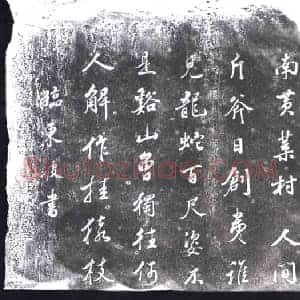 南黄葉村人间
斤斧日創夷誰
見龍蛇百尺姿不
是谿山曾獨往何
人解作挂猿枝
臨東坡書